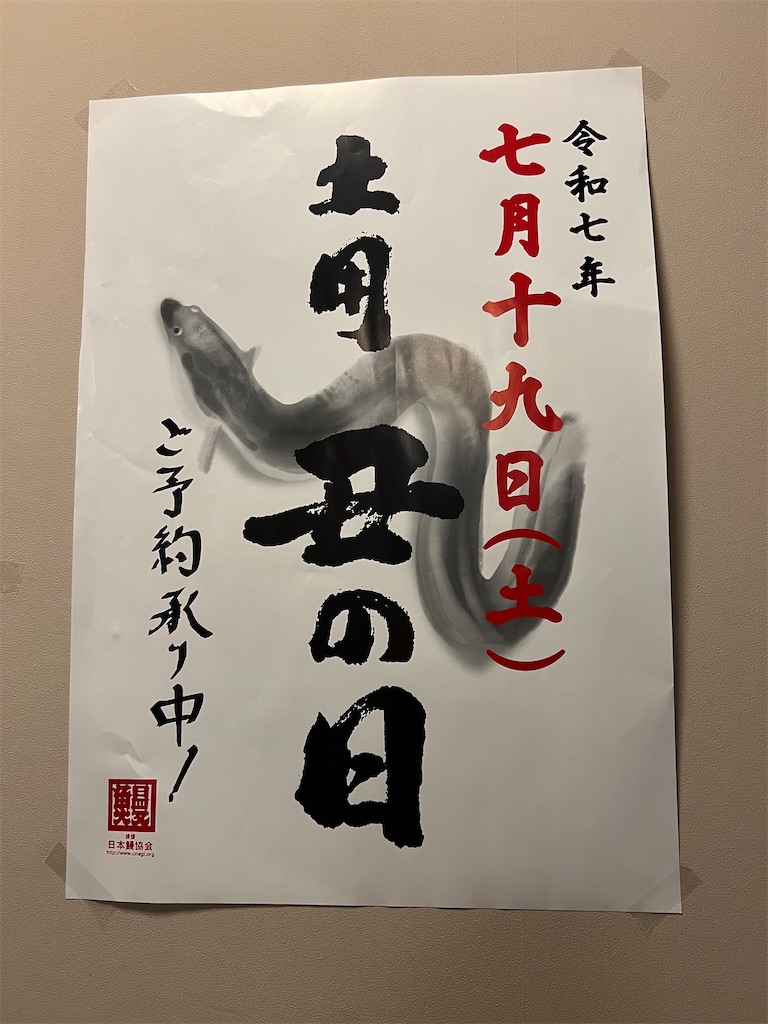 令和七年
七月十九日(土)
土用丑の日
ご予約承り中!
日本鰻協会
http://www.unagi.org